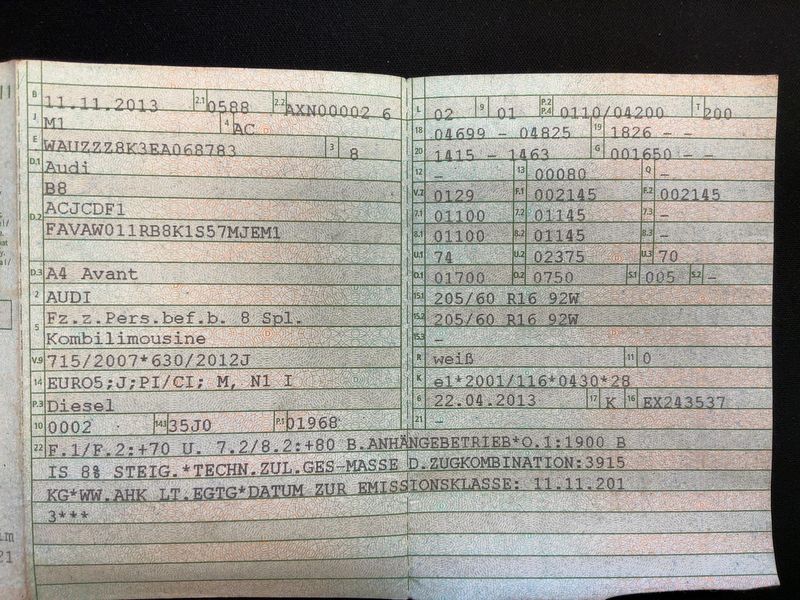 B 11.11.2013 2.1 0588 2.2 AXN00002 6
J M1 4 AC
E WAUZZZ8K3EA068783 3 8
D.1 Audi
B8
D.2 ACJCDF1
FAVAW011RB8K1S57MJEM1
D.3 A4 Avant
2 AUDI
5 Fz.z.Pers.bef.b. 8 Spl.
Kombilimousine
V.9 715/2007*630/2012J
14 EURO5;J;PI/CI; M, N1 I
P.3 Diesel
10 0002 14.1 35J0 P.1 01968
L 02 9 01 P.2 P.4 0110/04200 T 200
18 04699 - 04825 19 1826 - -
20 1415 - 1463 G 001650 - -
12 - 13 00080 Q -
V.7 0129 F.1 002145 F.2 002145
7.1 01100 7.2 01145 7.3 -
8.1 01100 8.2 01145 8.3 -
U.1 74 U.2 02375 U.3 70
O.1 01700 O.2 0750 S.1 005 S.2 -
15.1 205/60 R16 92W
15.2 205/60 R16 92W
15.3 -
R weiß 11 0
K e1*2001/116*0430*28
6 22.04.2013 17 K 16 EX243537
21 -
22 F.1/F.2:+70 U. 7.2/8.2:+80 B.ANHÄNGEBETRIEB*O.1:1900 B
IS 8% STEIG.*TECHN.ZUL.GES-MASSE D.ZUGKOMBINATION:3915
KG*WW.AHK LT.EGTG*DATUM ZUR EMISSIONSKLASSE: 11.11.201
3***